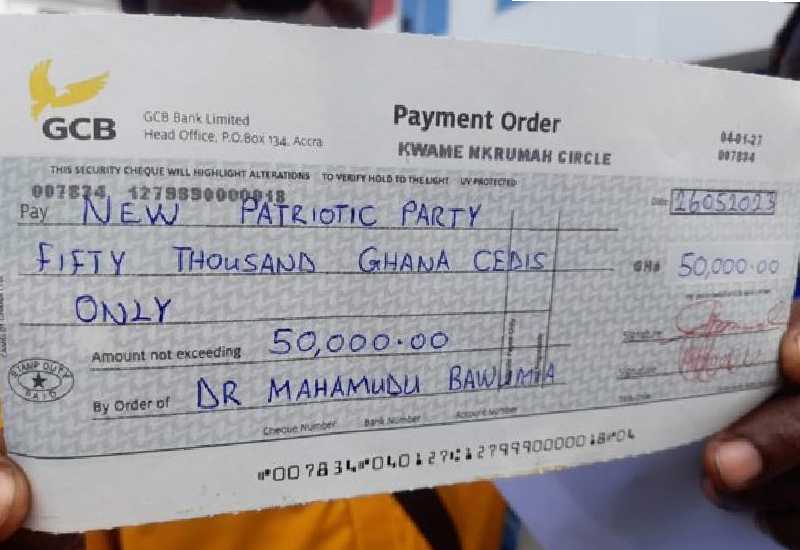 GCB
GCB Bank Limited
Head Office, P.O.Box 134, Accra
Payment Order
KWAME NKRUMAH CIRCLE
04-01-27
007834
THIS SECURITY CHEQUE WILL HIGHLIGHT ALTERATIONS TO VERIFY HOLD TO THE LIGHT UV PROTECTED
007834 1279990000018
Date 26052023
Pay NEW PATRIOTIC PARTY
FIFTY THOUSAND GHANA CEDIS
GH¢ 50,000.00
ONLY
Amount not exceeding 50,000.00
Signature
STAMP DUTY PAID
By Order of DR MAHAMUDU BAWUMIA
Signature
Cheque Number Bank Number Account Number
⑈007834⑈040127⑆1279990000018⑈04